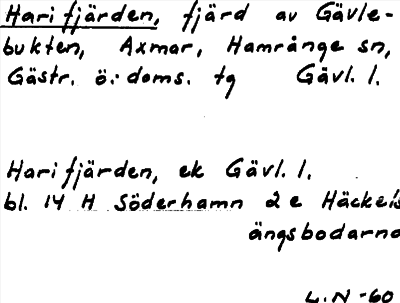 Harifjärden, fjärd av Gävle-
bukten, Axmar, Hamrånge sn,
Gästr. ö:doms. tg Gävl. l.
Harifjärden, ek Gävl. l.
bl. 14 H Söderhamn 2 e Häckels
ängsbodarna
L.N -60